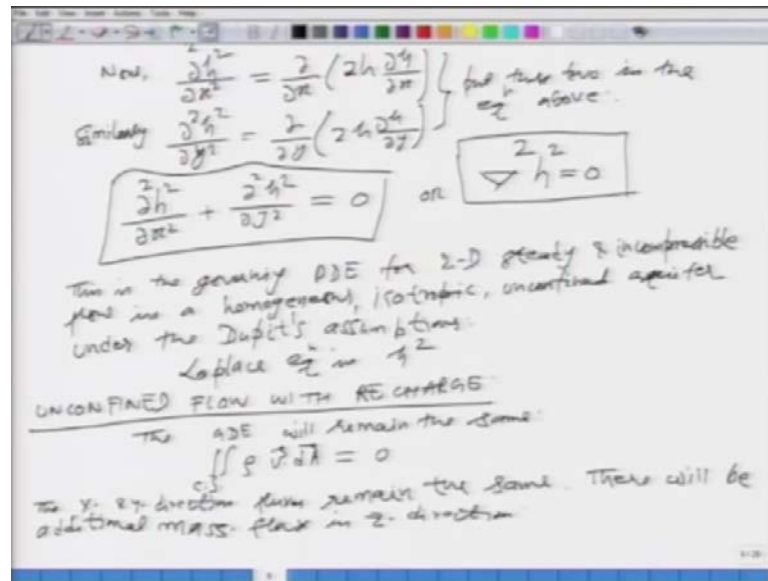 Now, ∂²h²/∂x² = ∂/∂x (2h ∂h/∂x) } put these two in the
Similarly ∂²h²/∂y² = ∂/∂y (2h ∂h/∂y) } eqⁿ above.
∂²h²/∂x² + ∂²h²/∂y² = 0 or ∇²h² = 0
This is the governing PDE for 2-D steady & incompressible
flow in a homogeneous, isotropic, unconfined aquifer
under the Dupit's assumptions.
Laplace eqⁿ in h²
UNCONFINED FLOW WITH RECHARGE
The will remain the same:
∬ c.s ρ V⃗.dA⃗ = 0
The x- & y-direction remain the same. There will be
additional mass flux in z-direction